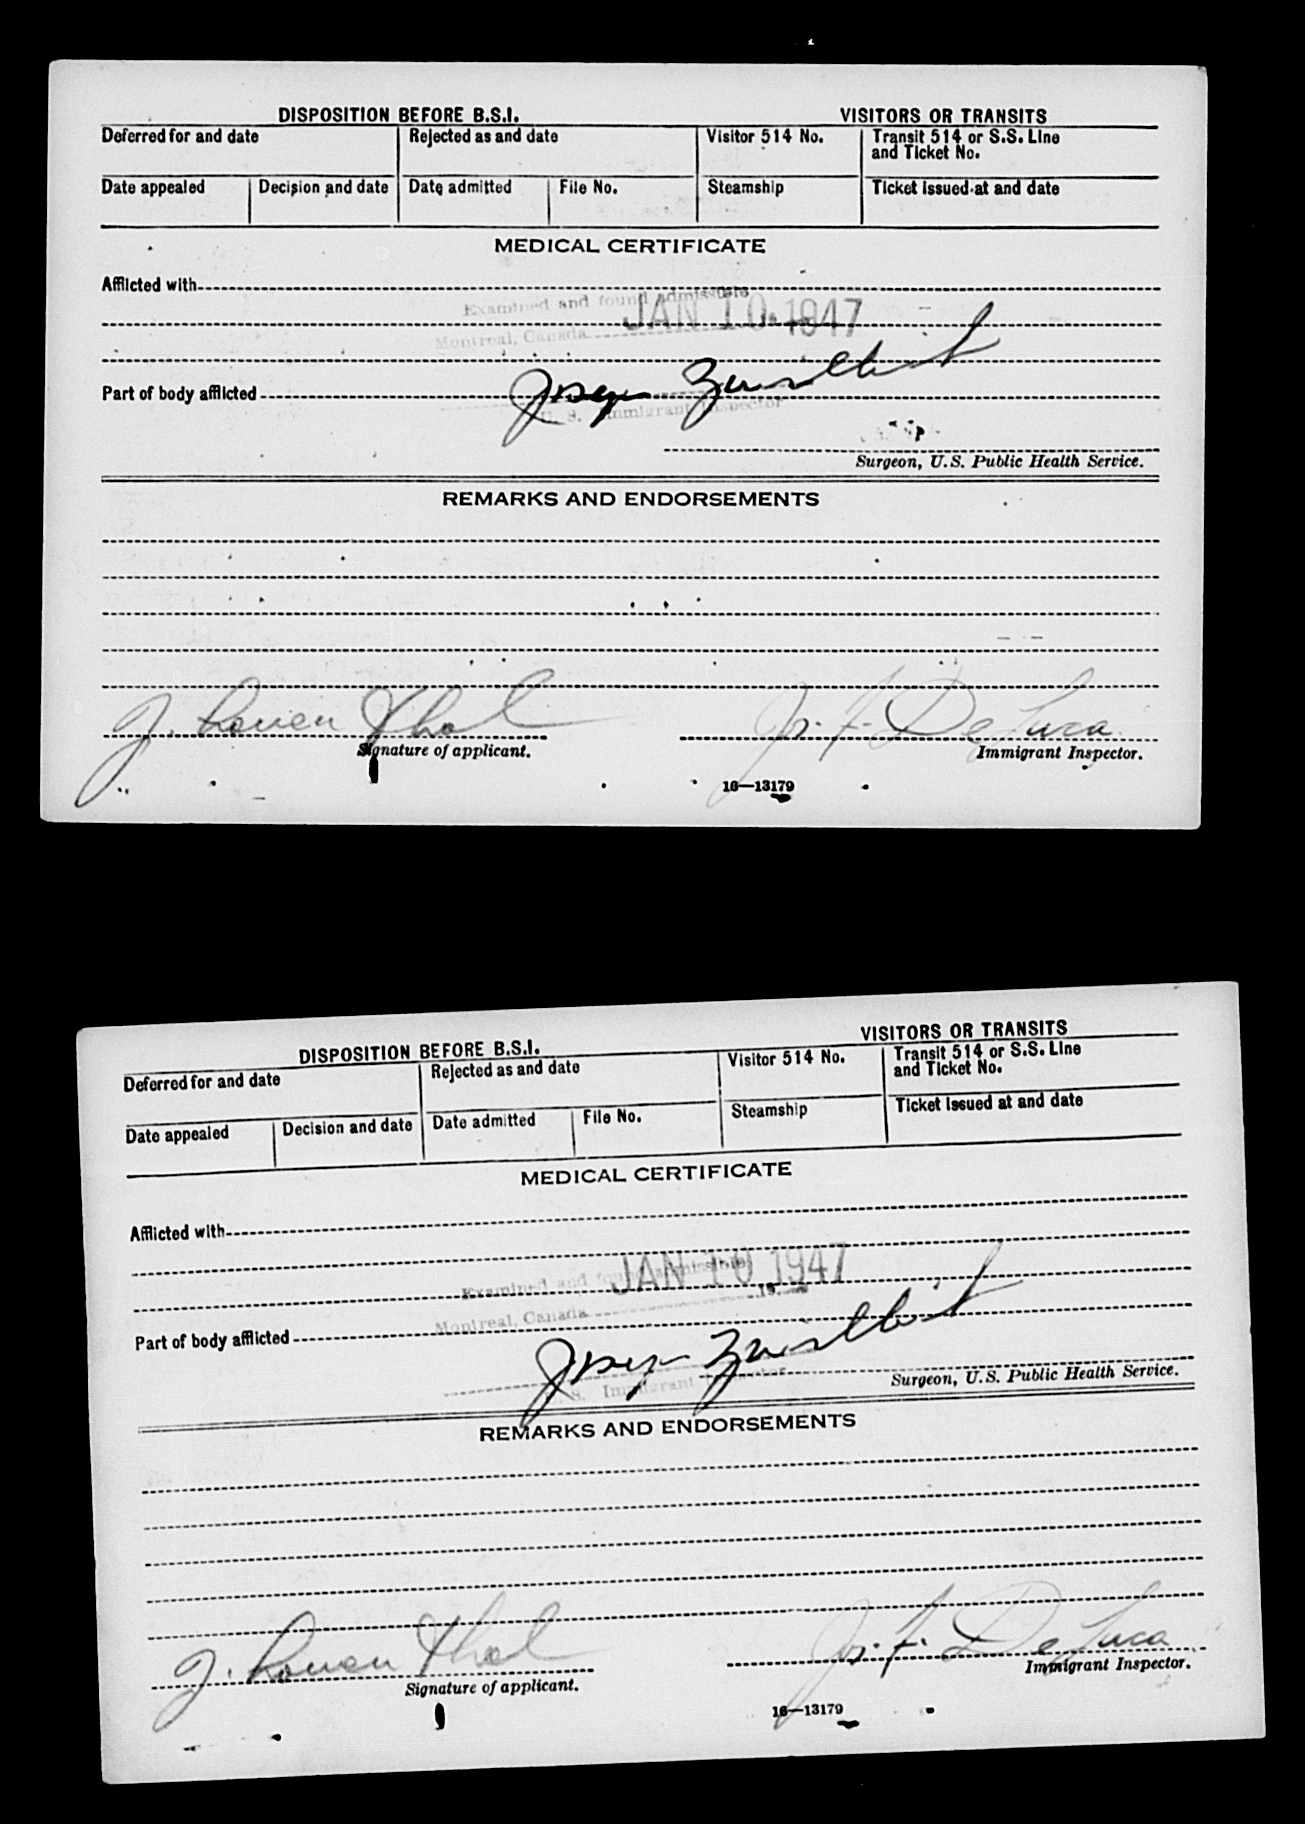 DISPOSITION BEFORE B.S.I. VISITORS OR TRANSITS
Deferred for and date Rejected as and date Visitor 514 No. Transit 514 or S.S. Line
and Ticket No.
Date appealed Decision and date Date admitted File No. Steamship Ticket issued at and date
MEDICAL CERTIFICATE
Afflicted with
Examined and found admissible
JAN 10 1947
Montreal, Canada
Part of body afflicted
U. S. Immigrant Inspector
Surgeon, U.S. Public Health Service.
REMARKS AND ENDORSEMENTS
J. F. De Luca
Signature of applicant. Immigrant Inspector.
16—13179
DISPOSITION BEFORE B.S.I. VISITORS OR TRANSITS
Deferred for and date Rejected as and date Visitor 514 No. Transit 514 or S.S. Line
and Ticket No.
Date appealed Decision and date Date admitted File No. Steamship Ticket issued at and date
MEDICAL CERTIFICATE
Afflicted with
Examined and found admissible
JAN 10 1947
Montreal, Canada 19
Part of body afflicted
S. Immigrant Inspector
Surgeon, U.S. Public Health Service.
REMARKS AND ENDORSEMENTS
J. F. De Luca
Signature of applicant. Immigrant Inspector.
16—13179